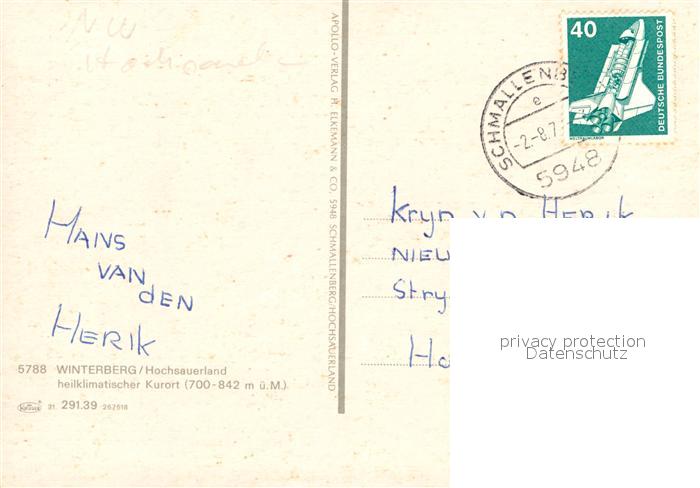 NW
40
DEUTSCHE BUNDESPOST
WELTRAUMLABOR
SCHMALLENB
e
-2.-8.7
5948
APOLLO-VERLAG H. ELKEMANN & CO. 5948 SCHMALLENBERG/HOCHSAUERLAND
HANS
VAN
dEN
HERIK
Kryn v.d. HERIK
NIEU
Stry
Ho
privacy protection
Datenschutz
5788 WINTERBERG/Hochsauerland
heilklimatischer Kurort (700-842 m ü.M.)
Krüger 21. 291.39 267618